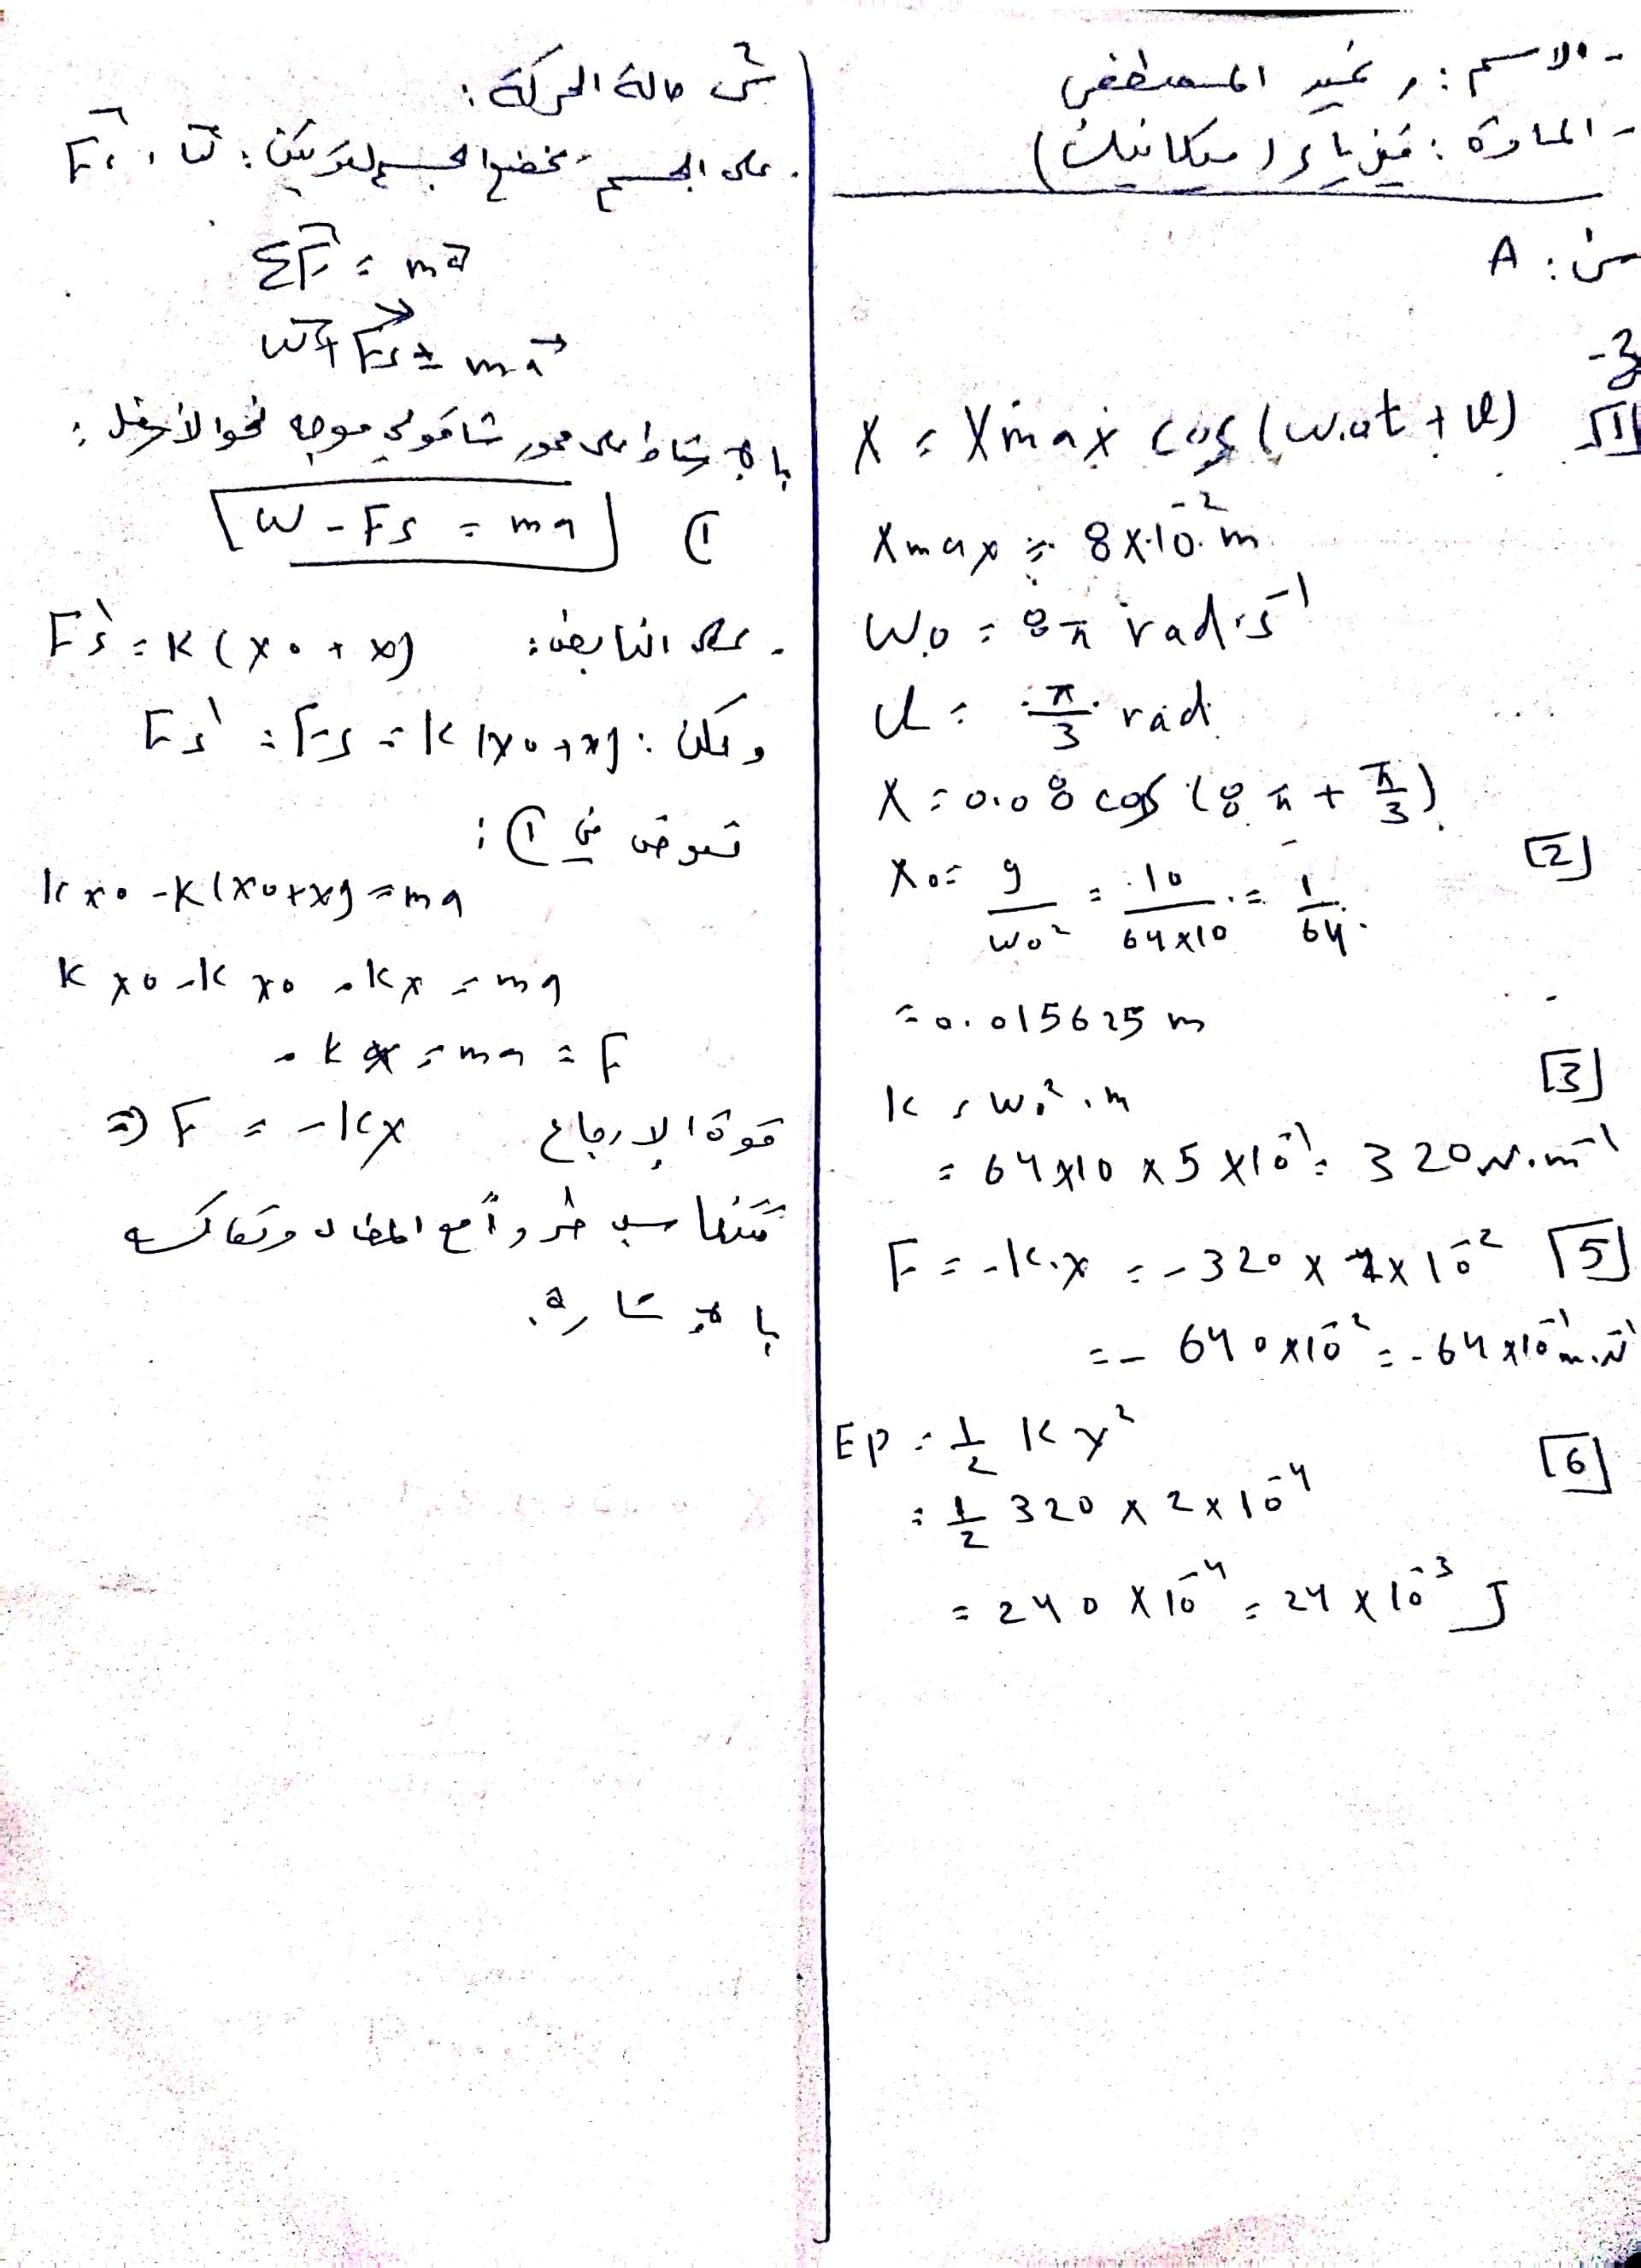 - الاسم: رغيد المصطفى
- المادة: فيزياء (ميكانيك)
س: A
ع-
[1] X = Xmax cos(ω.ot + φ)
Xmax = 8x10^-2 m
ω.o = 8π rad.s^-1
φ = π/3 rad
X = 0.08 cos (8π + π/3)
[2] X0 = g/ω0^2 = 10/64x10 = 1/64
= 0.015625 m
[3] k = ω0^2 . m
= 64x10 x 5x10^-1 = 320 N.m^-1
[5] F = -k.x = -320 x 2x10^-2
= -640x10^-2 = -64x10^-1 m.N^-1
[6] Ep = 1/2 k x^2
= 1/2 320 x 2x10^-4
= 240 x 10^-4 = 24 x 10^-3 J
حالة الحركة:
. على الجسم يخضع الجسم لقوتين:
ΣF = ma
W + Fs = ma
بالإسقاط على محور شاقولي موجه نحو الأسفل:
① W - Fs = ma
. على النابض: Fs' = k(x0 + x)
ولكن: Fs' = Fs = k(x0+x)
نعوض في ①:
kx0 - k(x0+x) = ma
kx0 - kx0 - kx = ma
- kx = ma = F
⇒ F = -kx قوة الإرجاع
تتناسب طرداً مع المطال وتعاكسه
بالإشارة.